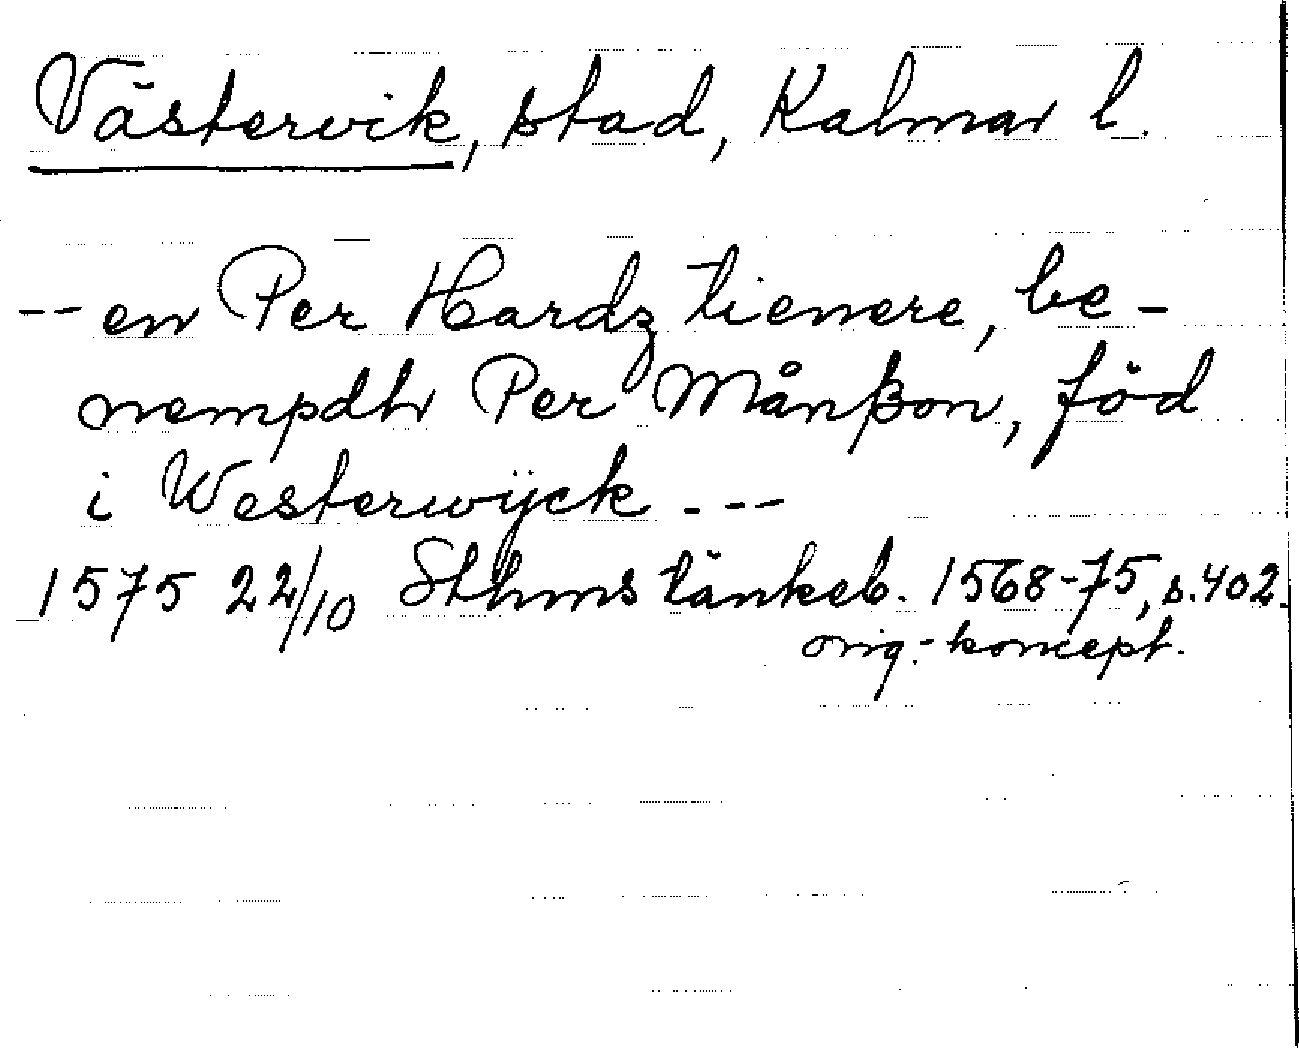 Västervik, stad, Kalmar l.
-- en Per Hardz tienere, be-
nempdh Per Månßon, föd
i Westerwÿck ---
1575 22/10 Sthms tänkeb. 1568-75, s. 402.
orig.-koncept.